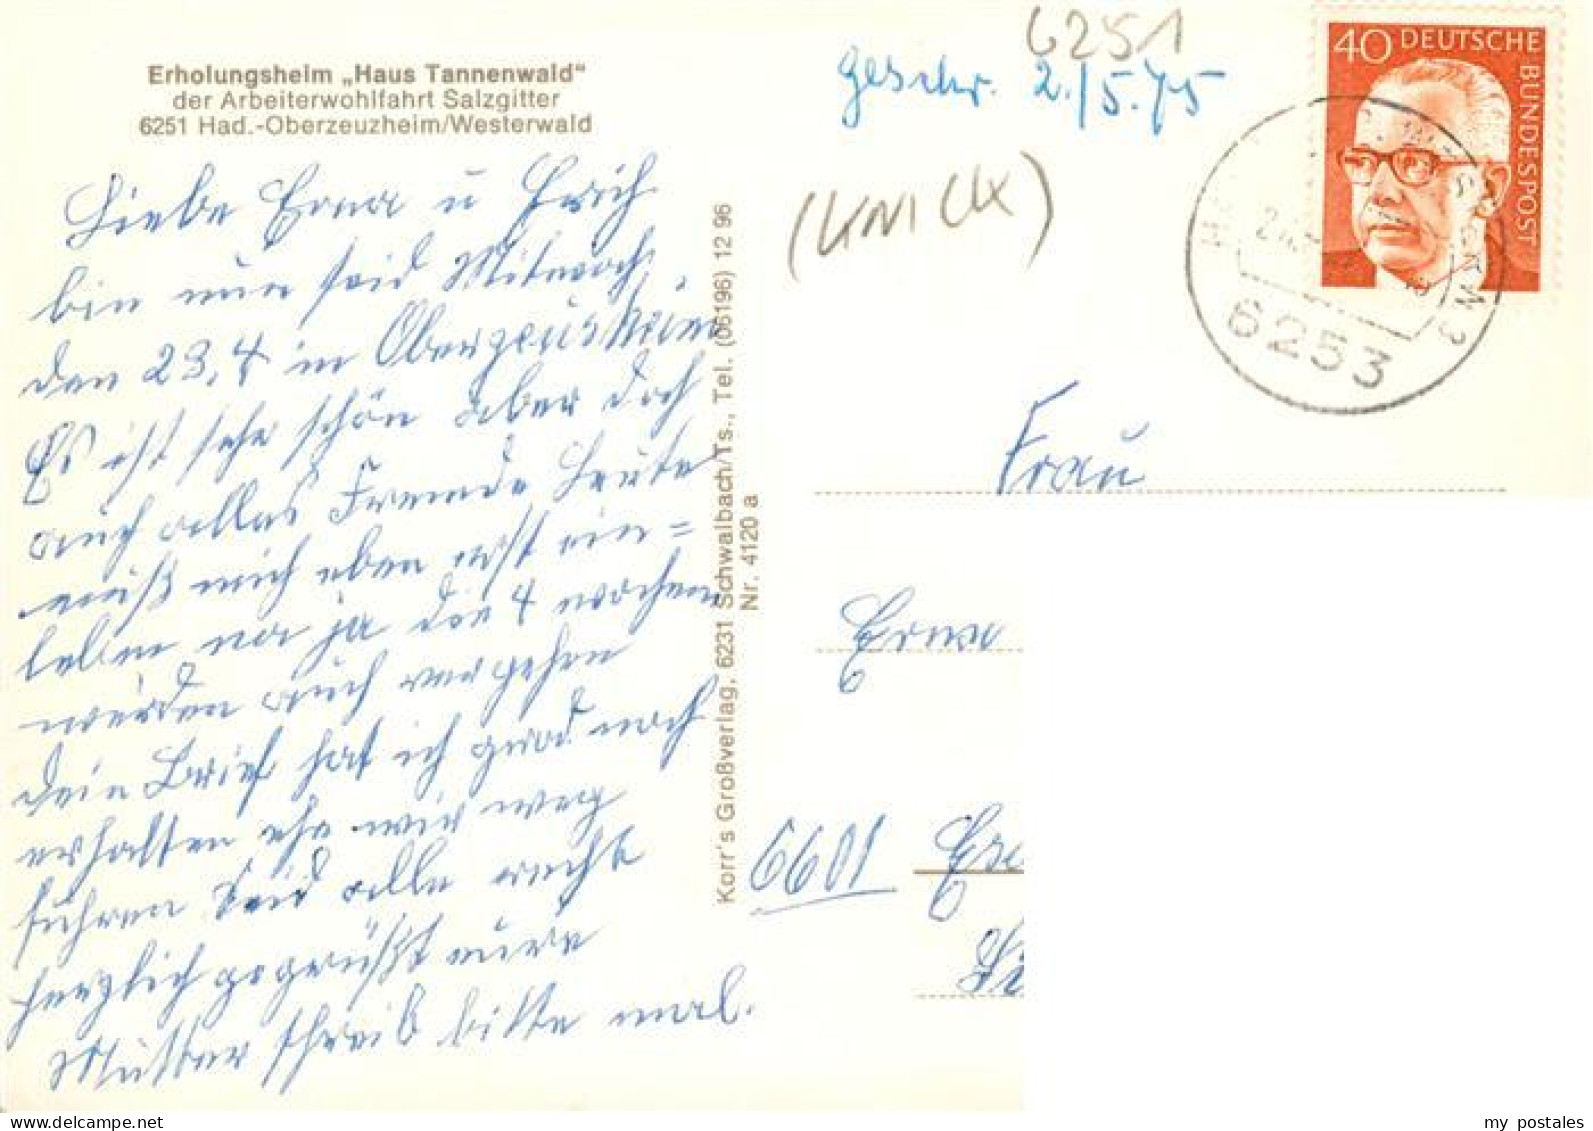 Erholungsheim „Haus Tannenwald"
der Arbeiterwohlfahrt Salzgitter
6251 Had.-Oberzeuzheim/Westerwald
Liebe Erna u Erich
bin nun seid Mitwoch,
den 23,4 in Oberzeusheim
Es ist sehr schön aber doch
auch alles Fremde Leute
muß mich eben erst ein=
leben na ja die 4 wochen
werden auch vergehen
dein Brief hat ich grad noch
erhalten ehe wir weg
fuhren Seid alle recht
herzlich gegrüßt eure
Mutter schreib bitte mal.
Korr's Großverlag, 6231 Schwalbach/Ts., Tel. (06196) 12 96
Nr. 4120 a
6251
geschr. 2./5.75
(KNICK)
40 DEUTSCHE
BUNDESPOST
6253
Frau
Erna
6601